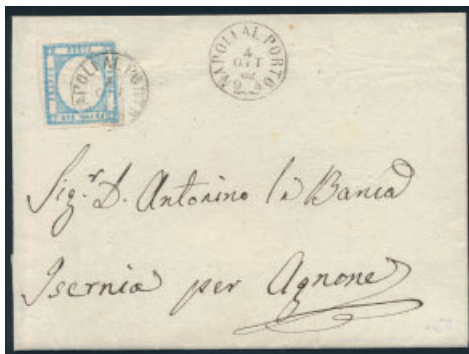 NAPOLI AL PORTO
4
OTT
62
NAPOLI AL PORTO
Sig.r D. Antonino la Banca
Isernia per Agnone